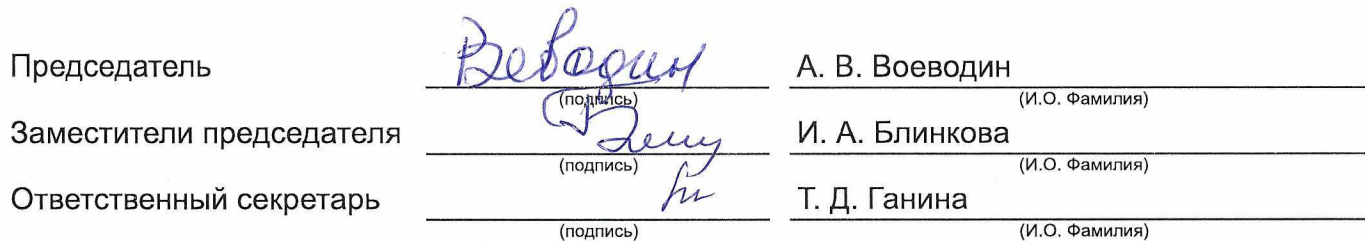 Председатель Веводин А. В. Воеводин
(подпись) (И.О. Фамилия)
Заместители председателя И. А. Блинкова
(подпись) (И.О. Фамилия)
Ответственный секретарь Т. Д. Ганина
(подпись) (И.О. Фамилия)